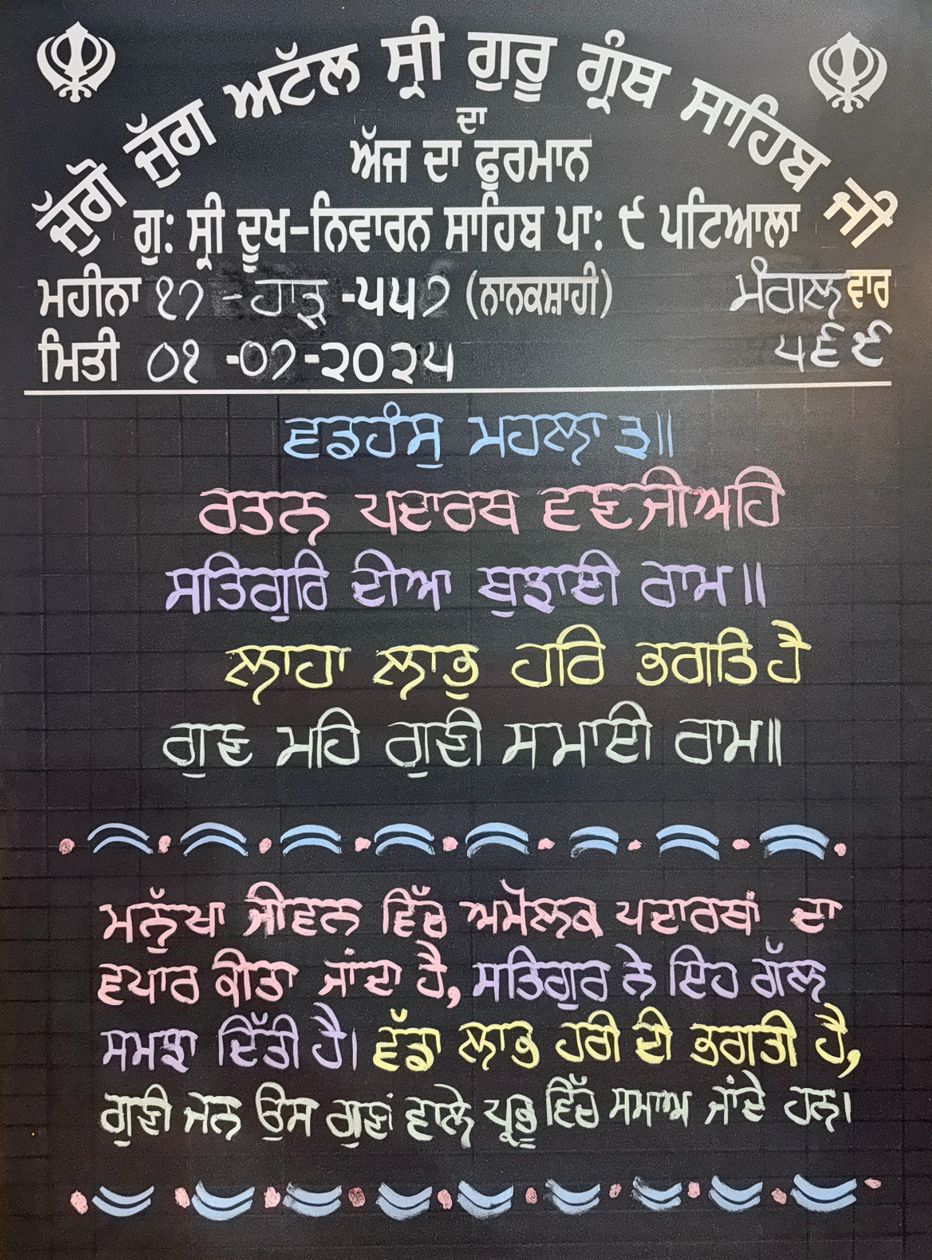 ਜੁੱਗੋ ਜੁੱਗ ਅਟੱਲ ਸ੍ਰੀ ਗੁਰੂ ਗ੍ਰੰਥ ਸਾਹਿਬ ਜੀ
ਦਾ
ਅੱਜ ਦਾ ਫੁਰਮਾਨ
ਗੁ: ਸ੍ਰੀ ਦੂਖ-ਨਿਵਾਰਨ ਸਾਹਿਬ ਪਾ: ੯ ਪਟਿਆਲਾ
ਮਹੀਨਾ ੧੭ - ਹਾੜ -੫੫੭ (ਨਾਨਕਸ਼ਾਹੀ) ਮੰਗਲਵਾਰ
ਮਿਤੀ ੦੧ -੦੭-੨੦੨੫ ੫੬੯
ਵਡਹੰਸੁ ਮਹਲਾ ੩॥
ਰਤਨ ਪਦਾਰਥ ਵਣਜੀਅਹਿ
ਸਤਿਗੁਰਿ ਦੀਆ ਬੁਝਾਈ ਰਾਮ॥
ਲਾਹਾ ਲਾਭੁ ਹਰਿ ਭਗਤਿ ਹੈ
ਗੁਣ ਮਹਿ ਗੁਣੀ ਸਮਾਈ ਰਾਮ॥
ਮਨੁੱਖਾ ਜੀਵਨ ਵਿੱਚ ਅਮੋਲਕ ਪਦਾਰਥਾਂ ਦਾ
ਵਪਾਰ ਕੀਤਾ ਜਾਂਦਾ ਹੈ, ਸਤਿਗੁਰ ਨੇ ਇਹ ਗੱਲ
ਸਮਝਾ ਦਿੱਤੀ ਹੈ। ਵੱਡਾ ਲਾਭ ਹਰੀ ਦੀ ਭਗਤੀ ਹੈ,
ਗੁਣੀ ਜਨ ਉਸ ਗੁਣਾਂ ਵਾਲੇ ਪ੍ਰਭੂ ਵਿੱਚ ਸਮਾਅ ਜਾਂਦੇ ਹਨ।